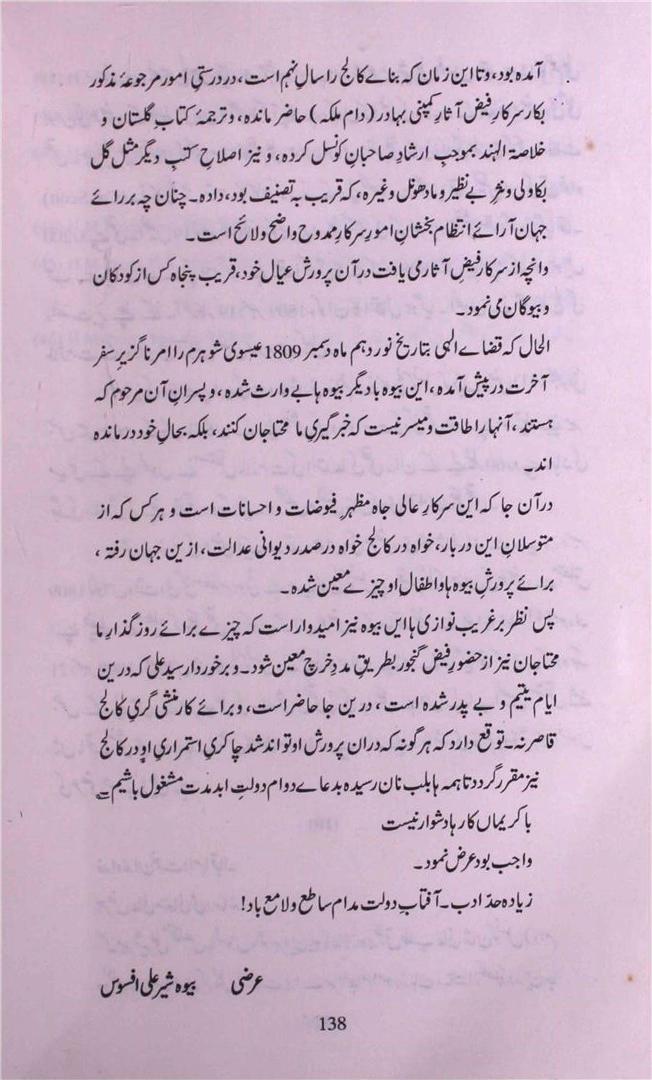 آمدہ بود، و تا این زمان کہ بنائے کالج را سال نہم است، در درستیِ امور مرجوعۂ مذکور
بکار سرکار فیض آثار کمپنی بہادر (دام ملکہ) حاضر ماندہ، و ترجمۂ کتابِ گلستان و
خلاصۃ الہند بموجبِ ارشادِ صاحبانِ کونسل کردہ، و نیز اصلاحِ کتبِ دیگر مثل گل
بکاولی و نثرِ بے نظیر و مادھونل وغیرہ، کہ قریب بہ تصنیف بود، دادہ۔ چنان چہ بر رائے
جہان آرائے انتظام بخشانِ امورِ سرکارِ ممدوح واضح و لائح است۔
وانچہ از سرکارِ فیض آثار می یافت در آن پرورش عیال خود، قریب پنجاہ کس از کودکان
و بیوگان می نمود۔
الحال کہ قضائے الٰہی بتاریخ نوزدہم ماہ دسمبر 1809 عیسوی شوہرم را امر ناگزیرِ سفر
آخرت در پیش آمدہ، این بیوہ با دیگر بیوہ ہا بے وارث شدہ، و پسرانِ آن مرحوم کہ
ہستند، آنہا را طاقت و میسر نیست کہ خبر گیریِ ما محتاجان کنند، بلکہ بحالِ خود درماندہ
اند۔
در آن جا کہ این سرکارِ عالی جاہ مظہرِ فیوضات و احسانات است و ہر کس کہ از
متوسلانِ این دربار، خواہ در کالج خواہ در صدر دیوانی عدالت، ازین جہان رفتہ،
برائے پرورشِ بیوہ ہا و اطفالِ او چیزے معین شدہ۔
پس نظر بر غریب نوازی ہا این بیوہ نیز امیدوار است کہ چیزے برائے روزگذارِ ما
محتاجان نیز از حضورِ فیض گنجور بطریقِ مددِ خرچ معین شود۔ و برخوردار سید علی کہ درین
ایام یتیم و بے پدر شدہ است، درین جا حاضر است، و برائے کارِ منشی گریِ کالج
قاصر نہ۔ توقع دارد کہ ہر گونہ کہ دران پرورش او تواند شد چاکریِ استمراریِ او در کالج
نیز مقرر گردد تا ہمہ ہا بلب نان رسیدہ بدعاے دوام دولتِ ابد مدت مشغول باشیم ؎
با کریماں کارہا دشوار نیست
واجب بود عرض نمود۔
زیادہ حدِّ ادب۔ آفتابِ دولت مدام ساطع و لامع باد!
عرضی بیوہ شیر علی افسوس
138